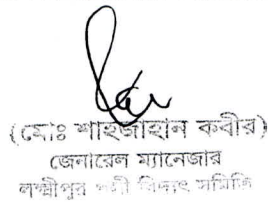 (মোঃ শাহজাহান কবীর)
জেনারেল ম্যানেজার
লক্ষ্মীপুর পল্লী বিদ্যুৎ সমিতি